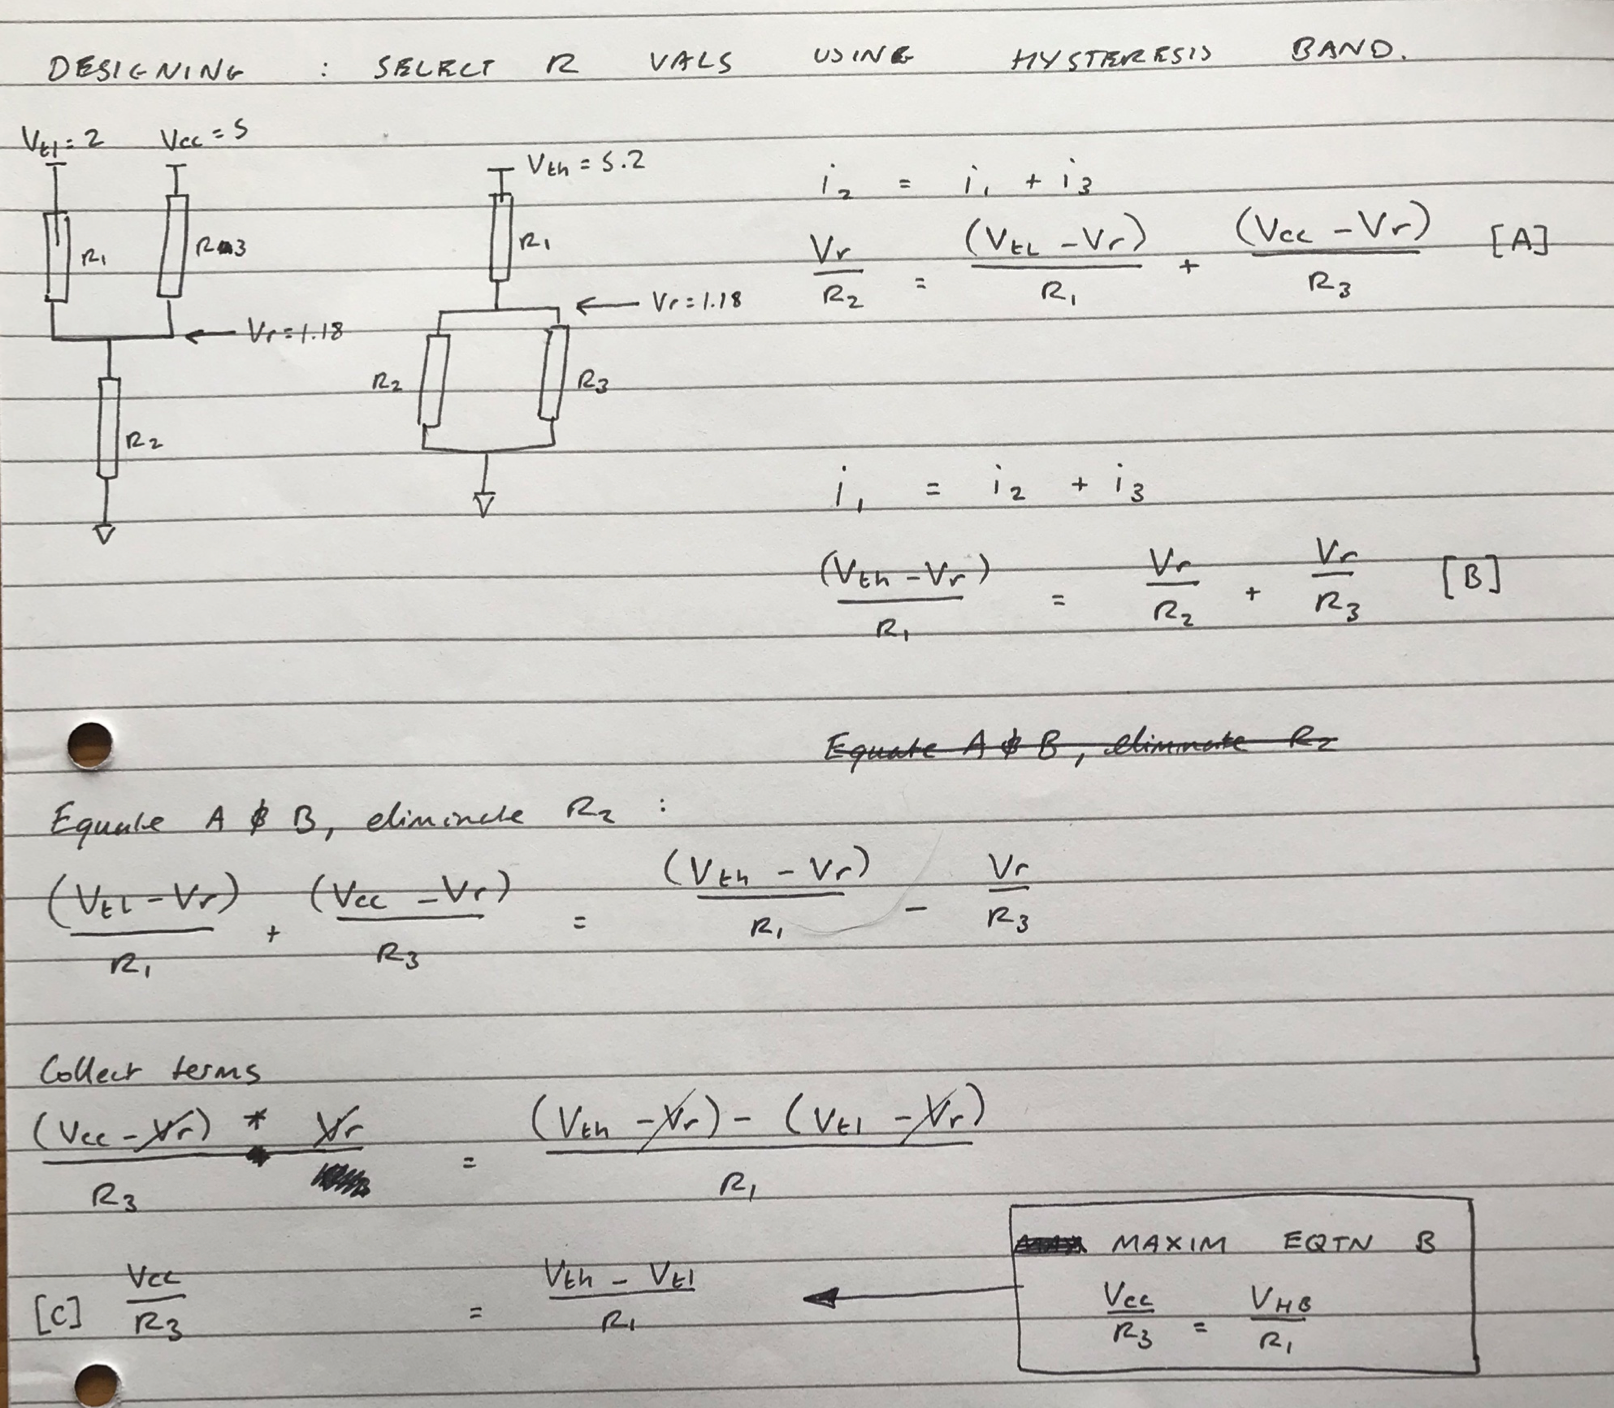 DESIGNING : SELECT R VALS USING HYSTERESIS BAND.
Vtl = 2 Vcc = 5
Vth = 5.2
R1 R3
R1
Vr = 1.18
Vr = 1.18
R2 R3
R2
i2 = i1 + i3
Vr/R2 = (VtL - Vr)/R1 + (Vcc - Vr)/R3 [A]
i1 = i2 + i3
(Vth - Vr)/R1 = Vr/R2 + Vr/R3 [B]
Equate A & B, eliminate R2
Equate A & B, eliminate R2 :
(Vtl - Vr)/R1 + (Vcc - Vr)/R3 = (Vth - Vr)/R1 - Vr/R3
Collect terms
(Vcc - Vr) * Vr/R3 = (Vth - Vr) - (Vtl - Vr)/R1
[C] Vcc/R3 = Vth - Vtl/R1
MAXIM EQTN B
Vcc/R3 = VHB/R1